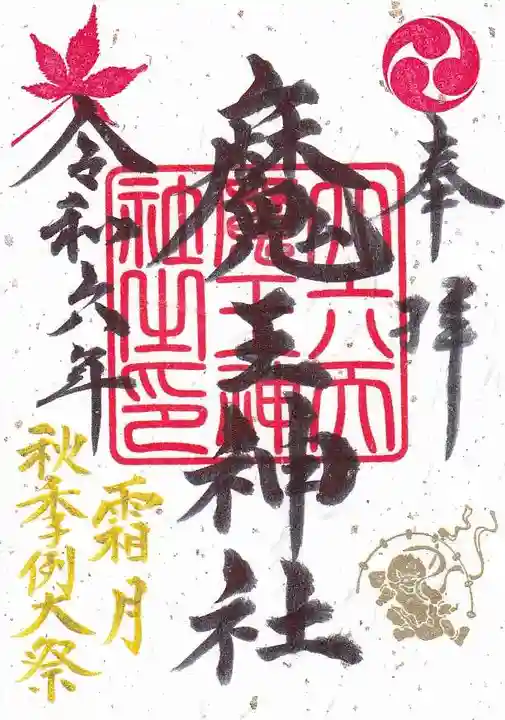 奉拝
魔王神社
大六天
魔王神
社之印
令和六年
霜月
秋季例大祭